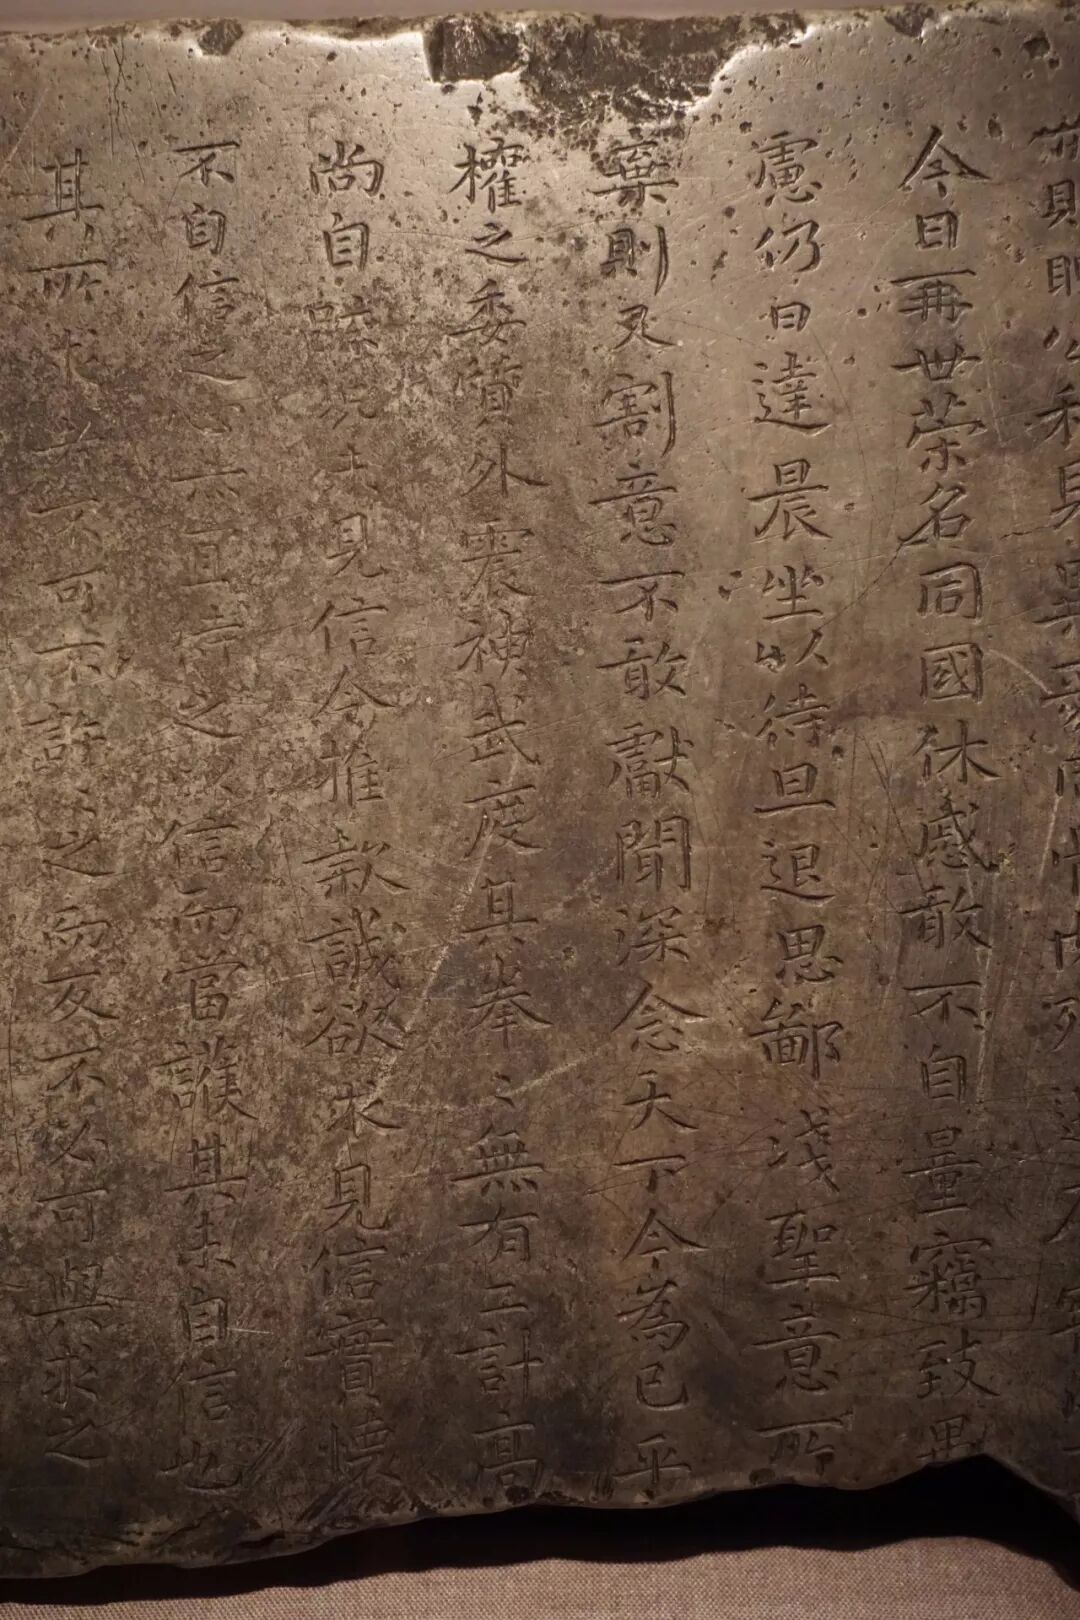 公私見異
今日再世榮名同國休慼敢不自量竊致愚
慮仍日達晨坐以待旦退思鄙淺聖意所
棄則又割意不敢獻聞深念天下今為已平
權之委質外震神武度其拳〻無有二計高
尚自疏況未見信今推款誠欲求見信實懷
不自信之心亦宜待之以信而當護其未自信也
其所求者不可不許〻之而反不必可與求之